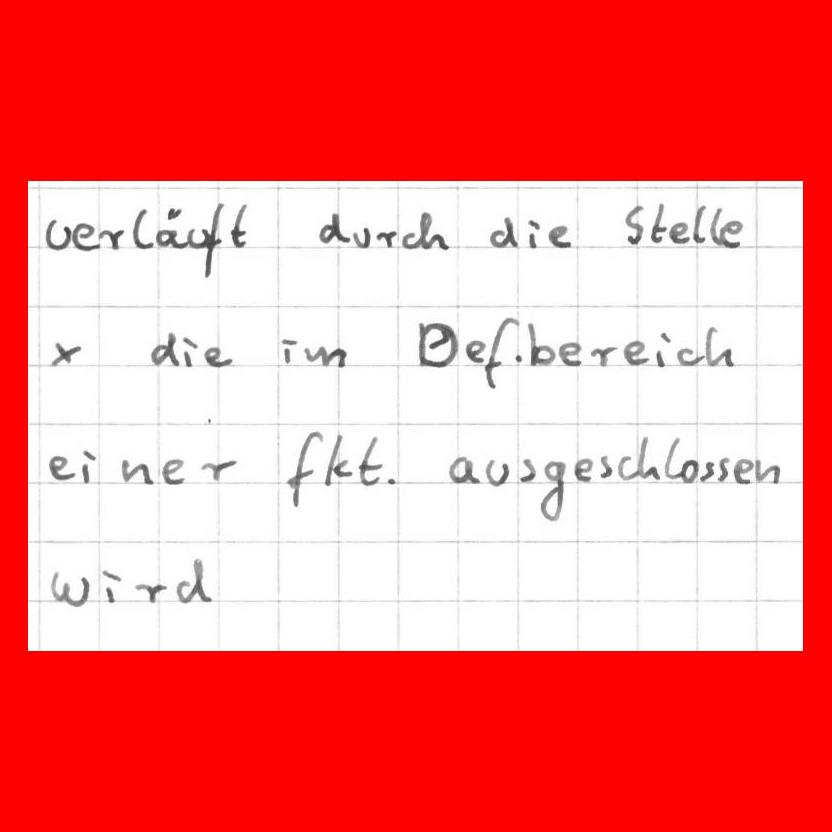 verläuft durch die Stelle
x die im Def.bereich
einer fkt. ausgeschlossen
wird